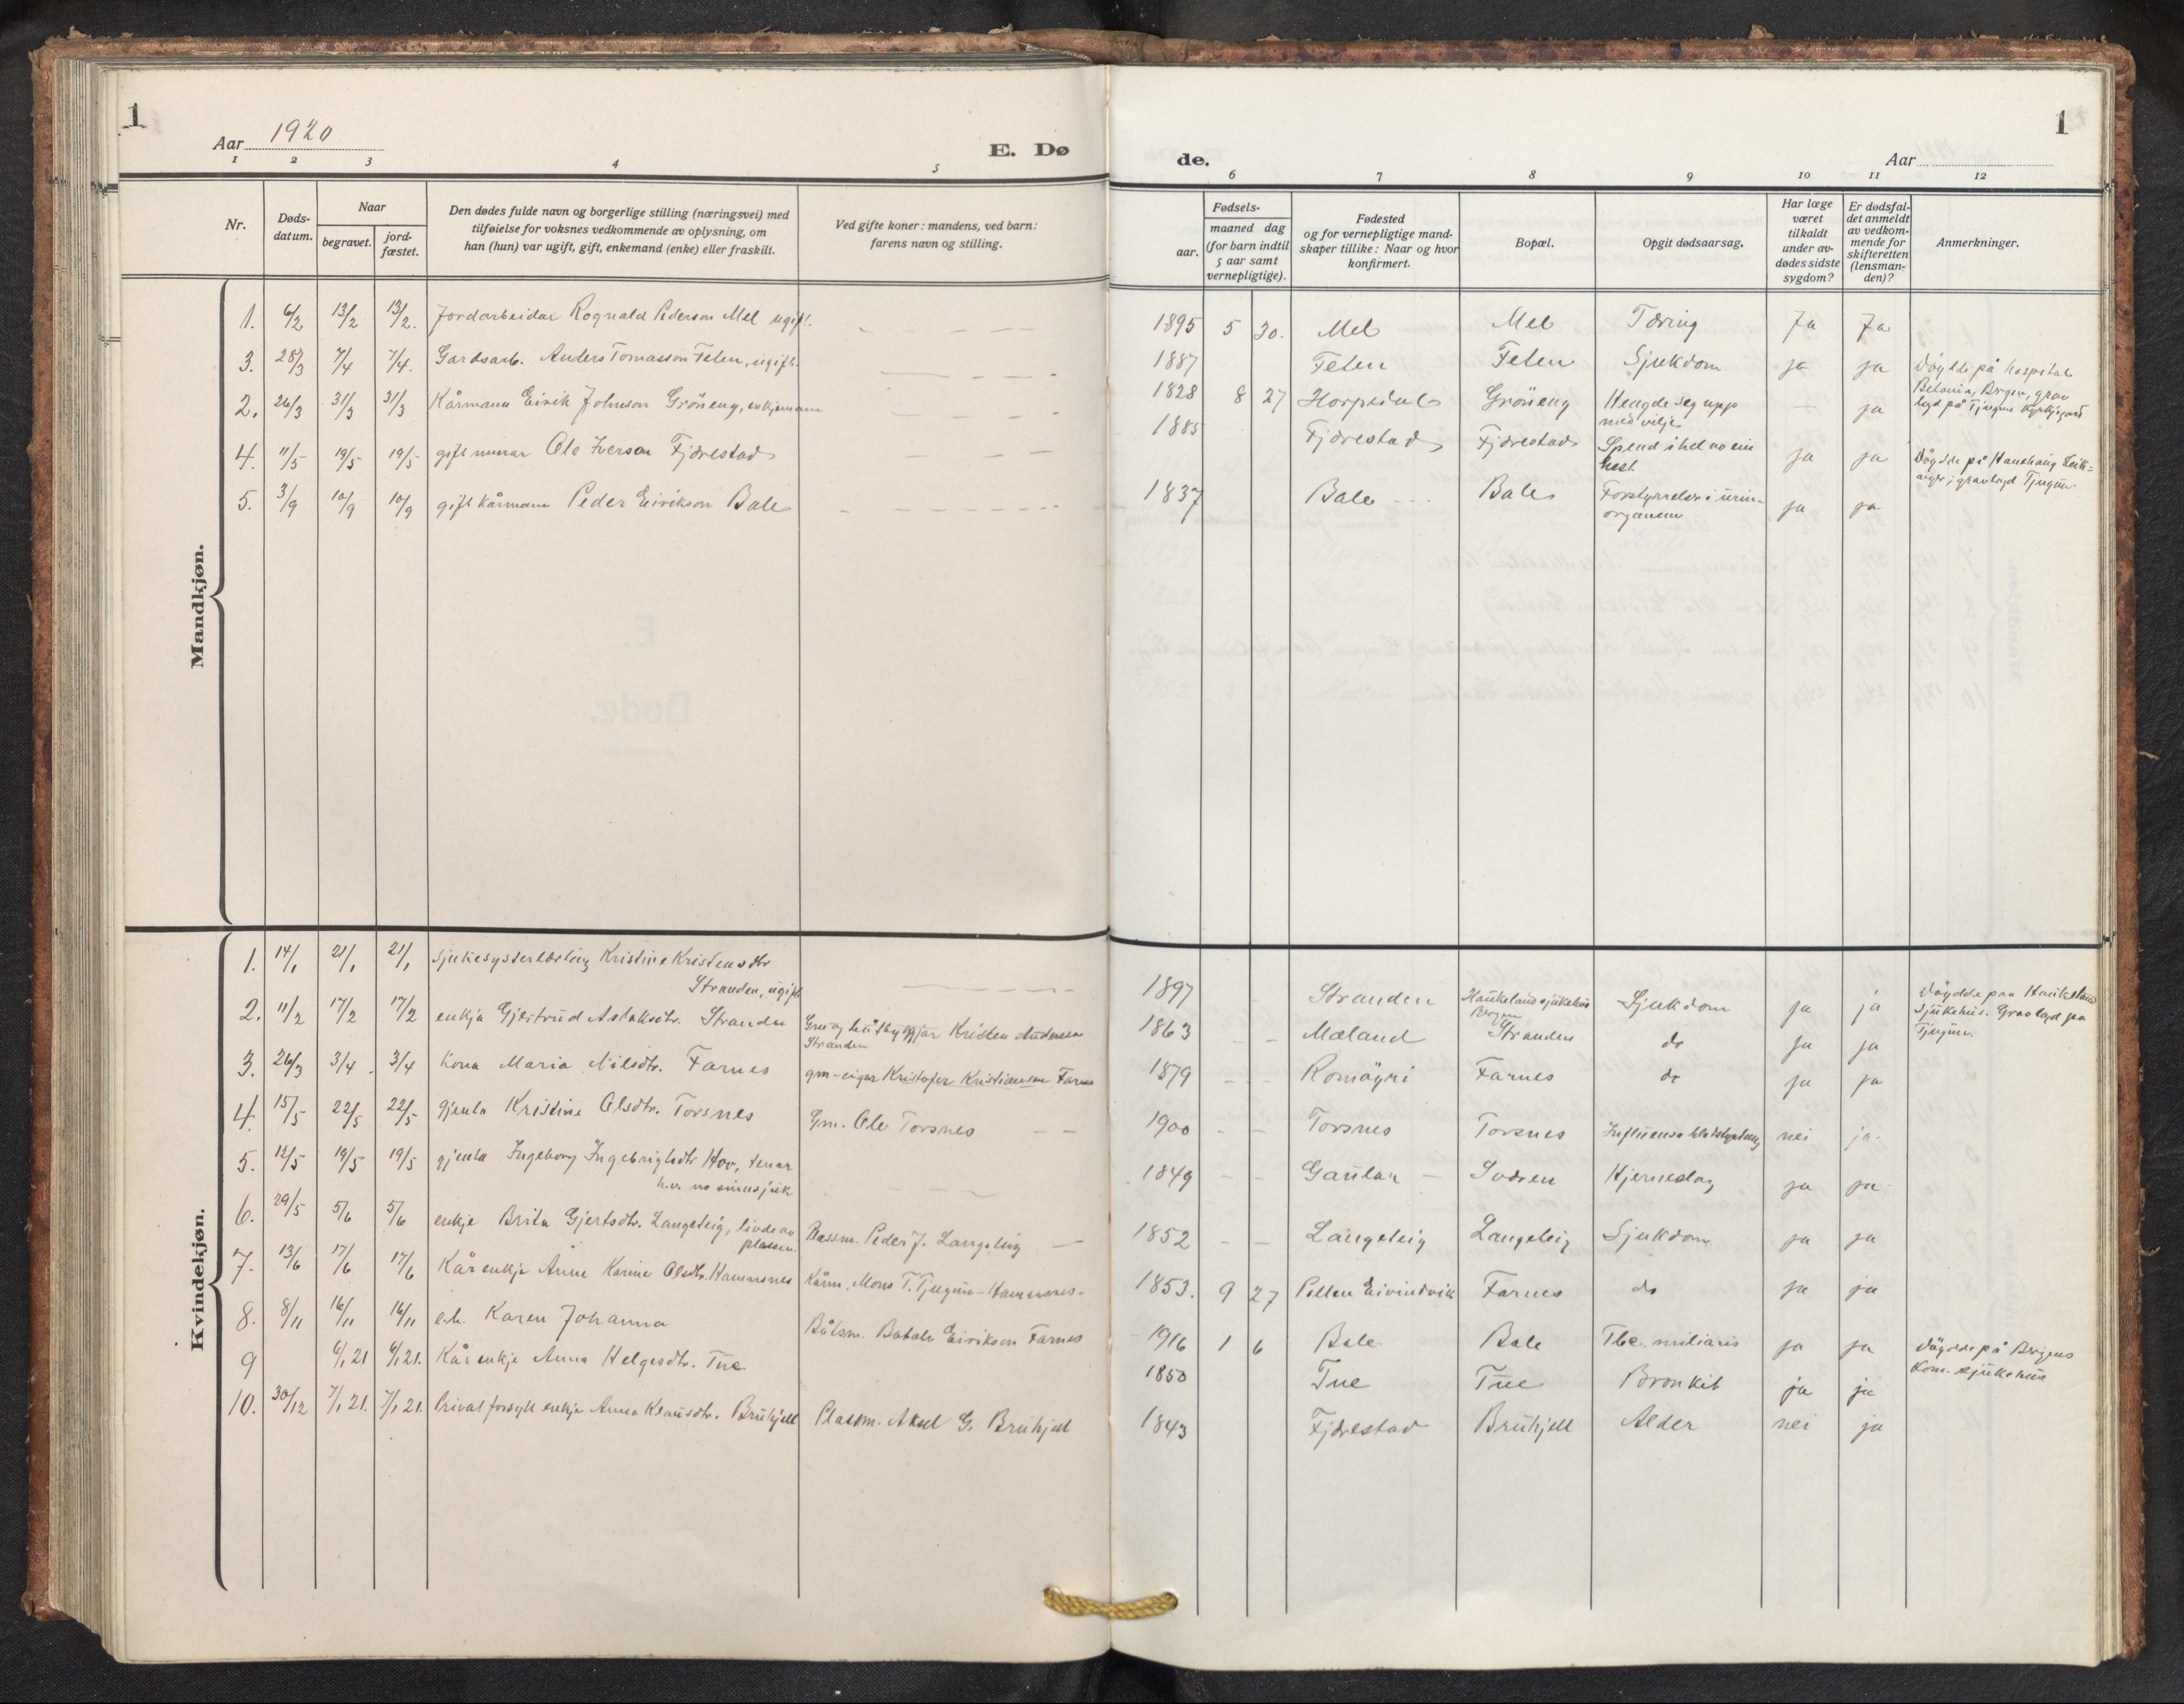 1
Aar 1920
E. Dø
1 2 3 4 5
Nr.
Døds-
datum.
Naar
begravet.
jord-
fæstet.
Den dødes fulde navn og borgerlige stilling (næringsvei) med
tilføielse for voksnes vedkommende av oplysning, om
han (hun) var ugift, gift, enkemand (enke) eller fraskilt.
Ved gifte koner: mandens, ved barn:
farens navn og stilling.
Mandkjøn.
1. 6/2 13/2 13/2. Jordarbeidar Rognald Pederson Mel ugift.
3. 28/3 7/4 7/4. Gardsarb. Anders Tomasson Feten, ugift.
2. 26/3 31/3 31/3 Kårmann Eirik Johnson Gröneng, enkjemann
4. 11/5 19/5 19/5 gift murar Ole Iverson Fjærestad
5. 3/9 10/9 10/9 gift kårmann Peder Eirikson Bale
Kvindekjøn.
1. 14/1 21/1 21/1 Sjukesysterlærling Kristine Kristensdtr
Stranden, ugift
2. 11/2 17/2 17/2 enkja Gjertrud Aslaksdtr. Stranden Grm og husbyggjar Kristen Andersen
Stranden
3. 26/3 3/4 3/4 Kona Maria Nilsdtr. Farnes gm-eigar Kristofer Kristiansen Farnes
4. 15/5 22/5 22/5 gjenta Kristine Olsdtr. Torsnes Gm. Ole Torsnes
5. 12/5 19/5 19/5 gjenta Ingeborg Ingebrigtsdtr Hov, tenar
h.v. no sinnssjuk
6. 29/5 5/6 5/6 enkje Brita Gjertsdtr. Langeteig, livde av
plassen. Plassm. Peder J. Langeteig
7. 13/6 17/6 17/6 Kårenkje Anne Karine Olsdtr. Hamarsnes Kårm. Mons T. Tjugum-Hamarsnes-
8. 8/11 16/11 16/11 e.b. Karen Johanna Båtsm. Botolv Eirikson Farnes
9 6/1 21 6/1 21. Kårenkje Anna Helgesdtr. Tue
10. 30/12 7/1 21. 7/1 21. Privat forsytt enkje Anna Klausdtr. Bruhjell Plassm. Aksel G. Bruhjell
de.
1
Aar
6 7 8 9 10 11 12
Fødsels-
aar.
maaned dag
(for barn indtil
5 aar samt
vernepligtige).
Fødested
og for vernepligtige mand-
skaper tillike: Naar og hvor
konfirmert.
Bopæl.
Opgit dødsaarsag.
Har læge
været
tilkaldt
under av-
dødes sidste
sygdom?
Er dødsfal-
det anmeldt
av vedkom-
mende for
skifteretten
(lensman-
den)?
Anmerkninger.
1895 5 30. Mel Mel Tæring Ja Ja
1887 Feten Feten Sjukdom ja ja Döydde på hospital
Betania, Bergen, grav
lagd på Tjugum kyrkjegard
1828 8 27 Hopsdal Gröneng Hengde seg upp
med vilje — ja
1885 Fjærestad Fjærestad Spend ihel av ein
hest ja ja Döydde på Haukhaug Leik-
anger, gravlagd Tjugum.
1837 Bale Bale Forstyrrelse i urin-
organene ja ja
1897 Stranden Haukeland sjukehus
Bergen Sjukdom ja ja Döydde paa Haukeland
Sjukehus. Gravlagd på
Tjugum.
1863 – – Mæland Stranden do ja ja
1879 – – Romöyri Farnes do ja ja
1900 – – Torsnes Torsnes Influensa blodstyrtning nei ja.
1849 – – Gaular — Sværen Hjerneslag ja ja
1852 – – Langeteig Langeteig Sjukdom ja ja
1853. 9 27 Pollen Eivindvik Farnes do ja ja
1916 1 6 Bale Bale Tbc. miliaris ja ja Döydde på Bergens
kom. sjukehus
1850 Tue Tue Bronkit ja ja
1843 Fjærestad Bruhjell Alder nei ja